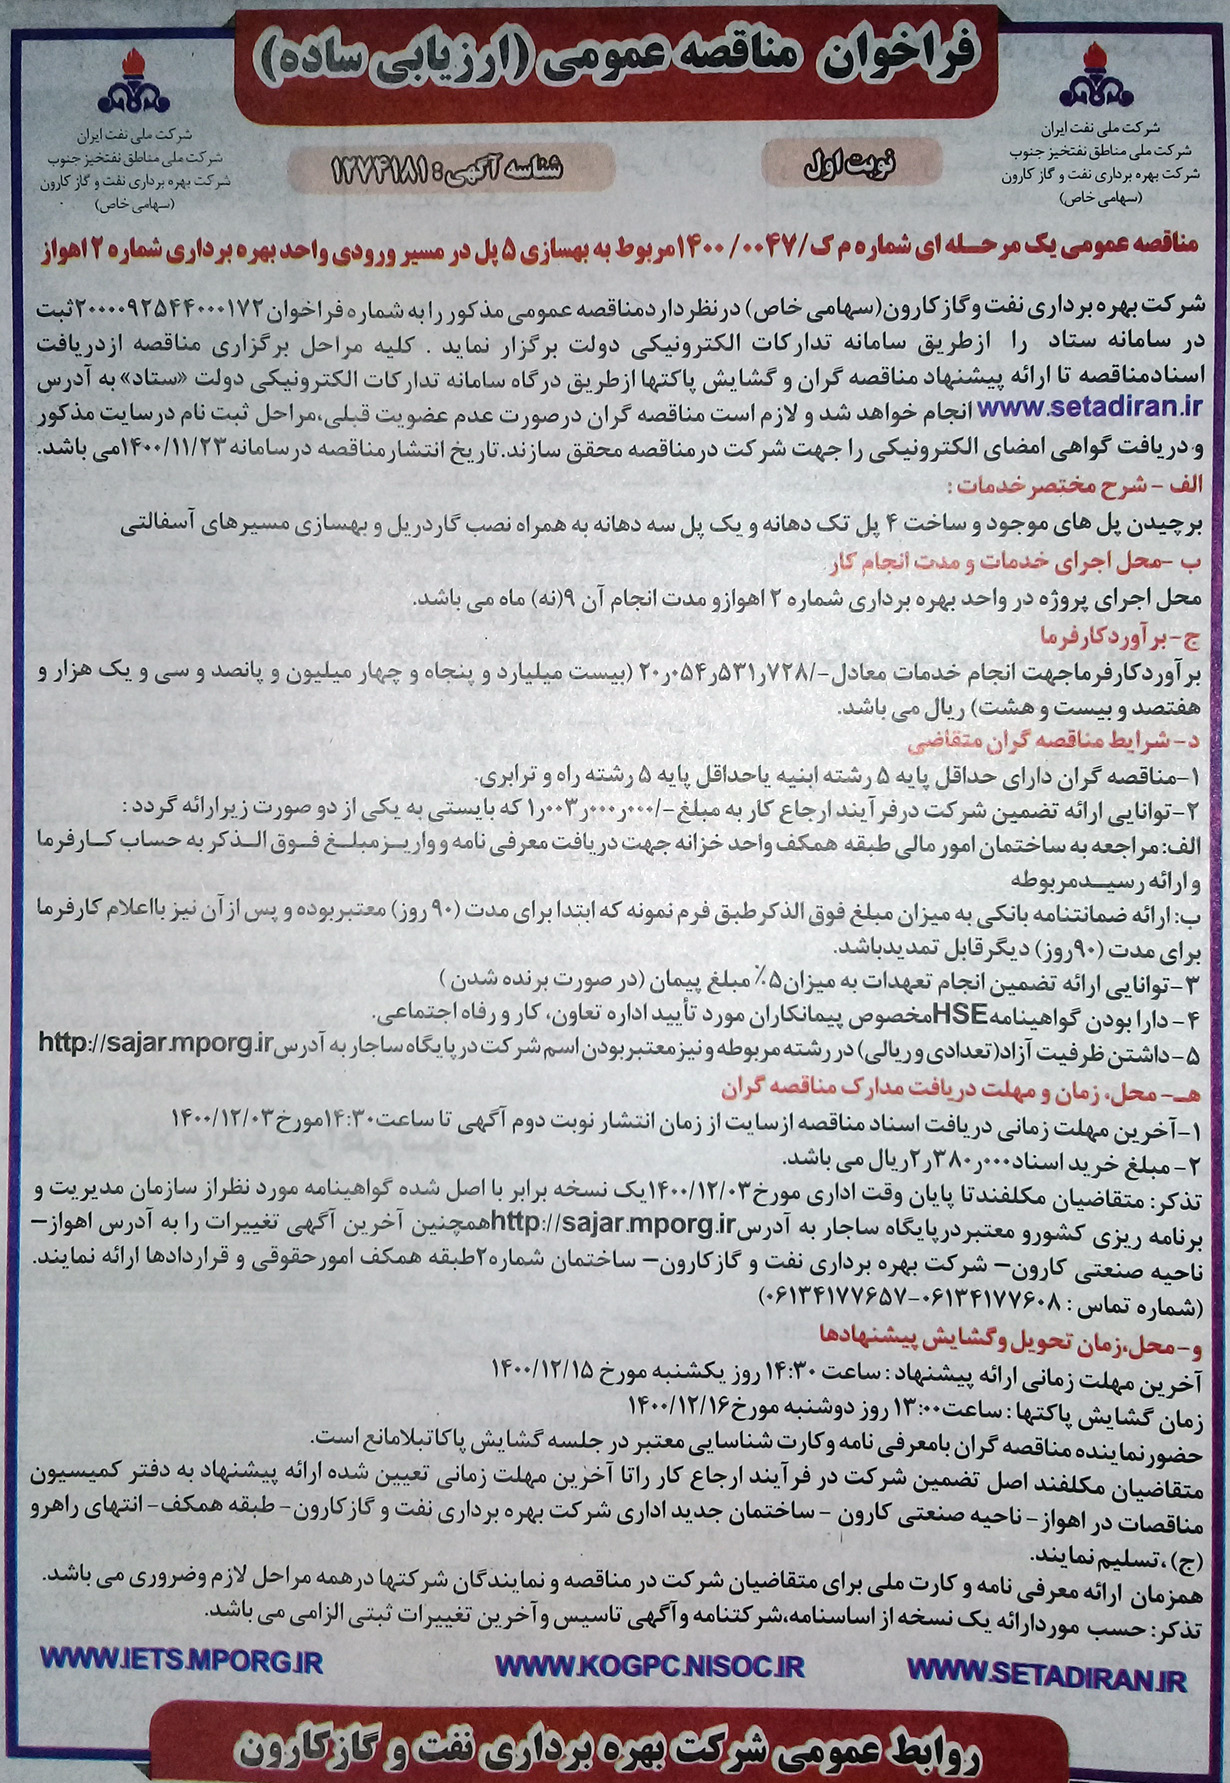 فراخوان مناقصه عمومی (ارزیابی ساده)
شرکت ملی نفت ایران
شرکت ملی مناطق نفتخیز جنوب
شرکت بهره برداری نفت و گاز کارون
(سهامی خاص)
نوبت اول
شناسه آگهی: ۱۲۷۴۱۸۱
شرکت ملی نفت ایران
شرکت ملی مناطق نفتخیز جنوب
شرکت بهره برداری نفت و گاز کارون
(سهامی خاص)
مناقصه عمومی یک مرحله ای شماره م ک/۱۴۰۰/۰۰۴۷ مربوط به بهسازی ۵ پل در مسیر ورودی واحد بهره برداری شماره ۲ اهواز
شرکت بهره برداری نفت وگاز کارون(سهامی خاص) در نظر دارد مناقصه عمومی مذکور را به شماره فراخوان ۲۰۰۰۰۹۲۵۴۴۰۰۰۱۷۲ ثبت
در سامانه ستاد را ازطریق سامانه تدارکات الکترونیکی دولت برگزار نماید . کلیه مراحل برگزاری مناقصه ازدریافت
اسنادمناقصه تا ارائه پیشنهاد مناقصه گران و گشایش پاکتها ازطریق درگاه سامانه تدارکات الکترونیکی دولت «ستاد» به آدرس
www.setadiran.ir انجام خواهد شد و لازم است مناقصه گران درصورت عدم عضویت قبلی،مراحل ثبت نام درسایت مذکور
و دریافت گواهی امضای الکترونیکی را جهت شرکت درمناقصه محقق سازند. تاریخ انتشار مناقصه در سامانه ۱۴۰۰/۱۱/۲۳می باشد.
الف - شرح مختصر خدمات :
برچیدن پل های موجود و ساخت ۴ پل تک دهانه و یک پل سه دهانه به همراه نصب گاردریل و بهسازی مسیرهای آسفالتی
ب -محل اجرای خدمات و مدت انجام کار
محل اجرای پروژه در واحد بهره برداری شماره ۲ اهوازو مدت انجام آن ۹(نه) ماه می باشد.
ج-برآوردکارفرما
برآوردکارفرماجهت انجام خدمات معادل -/۲۰٫۰۵۴٫۵۳۱٫۷۲۸ (بیست میلیارد و پنجاه و چهار میلیون و پانصد و سی و یک هزار و
هفتصد و بیست و هشت) ریال می باشد.
د- شرایط مناقصه گران متقاضی
۱-مناقصه گران دارای حداقل پایه ۵ رشته ابنیه یاحداقل پایه ۵ رشته راه و ترابری.
۲-توانایی ارائه تضمین شرکت درفرآیند ارجاع کار به مبلغ -/۱٫۰۰۳٫۰۰۰٫۰۰۰ که بایستی به یکی از دو صورت زیرارائه گردد :
الف: مراجعه به ساختمان امور مالی طبقه همکف واحد خزانه جهت دریافت معرفی نامه و واریز مبلغ فوق الذکر به حساب کارفرما
و ارائه رسیدمربوطه
ب: ارائه ضمانتنامه بانکی به میزان مبلغ فوق الذکرطبق فرم نمونه که ابتدا برای مدت (۹۰ روز) معتبربوده و پس ازآن نیز بااعلام کارفرما
برای مدت (۹۰روز) دیگرقابل تمدیدباشد.
۳-توانایی ارائه تضمین انجام تعهدات به میزان۵٪ مبلغ پیمان (در صورت برنده شدن )
۴- دارا بودن گواهینامهHSEمخصوص پیمانکاران مورد تأیید اداره تعاون، کار و رفاه اجتماعی.
۵-داشتن ظرفیت آزاد(تعدادی وریالی) در رشته مربوطه و نیز معتبربودن اسم شرکت در پایگاه ساجار به آدرس http://sajar.mporg.ir
هـ- محل، زمان و مهلت دریافت مدارک مناقصه گران
۱-آخرین مهلت زمانی دریافت اسناد مناقصه ازسایت از زمان انتشار نوبت دوم آگهی تا ساعت۱۴:۳۰مورخ ۱۴۰۰/۱۲/۰۳
۲- مبلغ خرید اسناد۲٫۳۸۰٫۰۰۰ریال می باشد.
تذکر: متقاضیان مکلفندتا پایان وقت اداری مورخ۱۴۰۰/۱۲/۰۳یک نسخه برابر با اصل شده گواهینامه مورد نظراز سازمان مدیریت و
برنامه ریزی کشورو معتبردرپایگاه ساجار به آدرسhttp://sajar.mporg.irهمچنین آخرین آگهی تغییرات را به آدرس اهواز–
ناحیه صنعتی کارون– شرکت بهره برداری نفت و گازکارون– ساختمان شماره۲طبقه همکف امورحقوقی و قراردادها ارائه نمایند.
(شماره تماس : ۰۶۱۳۴۱۷۷۶۰۸-۰۶۱۳۴۱۷۷۶۵۷)
و-محل،زمان تحویل وگشایش پیشنهادها
آخرین مهلت زمانی ارائه پیشنهاد : ساعت ۱۴:۳۰ روز یکشنبه مورخ ۱۴۰۰/۱۲/۱۵
زمان گشایش پاکتها : ساعت۱۳:۰۰ روز دوشنبه مورخ۱۴۰۰/۱۲/۱۶
حضورنماینده مناقصه گران بامعرفی نامه وکارت شناسایی معتبر در جلسه گشایش پاکاتبلامانع است.
متقاضیان مکلفند اصل تضمین شرکت در فرآیند ارجاع کار راتا آخرین مهلت زمانی تعیین شده ارائه پیشنهاد به دفتر کمیسیون
مناقصات در اهواز- ناحیه صنعتی کارون - ساختمان جدید اداری شرکت بهره برداری نفت و گازکارون- طبقه همکف- انتهای راهرو
(ج) ،تسلیم نمایند.
همزمان ارائه معرفی نامه و کارت ملی برای متقاضیان شرکت در مناقصه و نمایندگان شرکتها درهمه مراحل لازم وضروری می باشد.
تذکر: حسب موردارائه یک نسخه از اساسنامه،شرکتنامه وآگهی تاسیس وآخرین تغییرات ثبتی الزامی می باشد.
WWW.SETADIRAN.IR
WWW.KOGPC.NISOC.IR
WWW.IETS.MPORG.IR
روابط عمومی شرکت بهره برداری نفت و گاز کارون